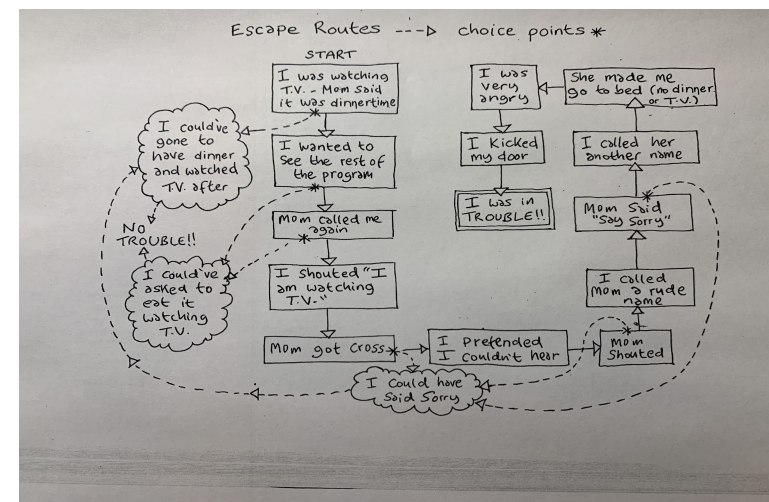 Escape Routes ---▷ choice points *
START
I was watching
T.V. - Mom said
it was dinnertime
I wanted to
see the rest of
the program
Mom called me
again
I shouted "I
am watching
T.V."
Mom got cross
I Pretended
I couldn't hear
Mom
Shouted
I called
Mom a rude
name
Mom Said
"Say Sorry"
I called her
another name
She made me
go to bed (no dinner
or T.V.)
I was
very
angry
I Kicked
my door
I was in
TROUBLE!!
I could've
gone to
have dinner
and watched
T.V. after
NO
TROUBLE!!
I could've
asked to
eat it
watching
T.V.
I Could have
Said Sorry